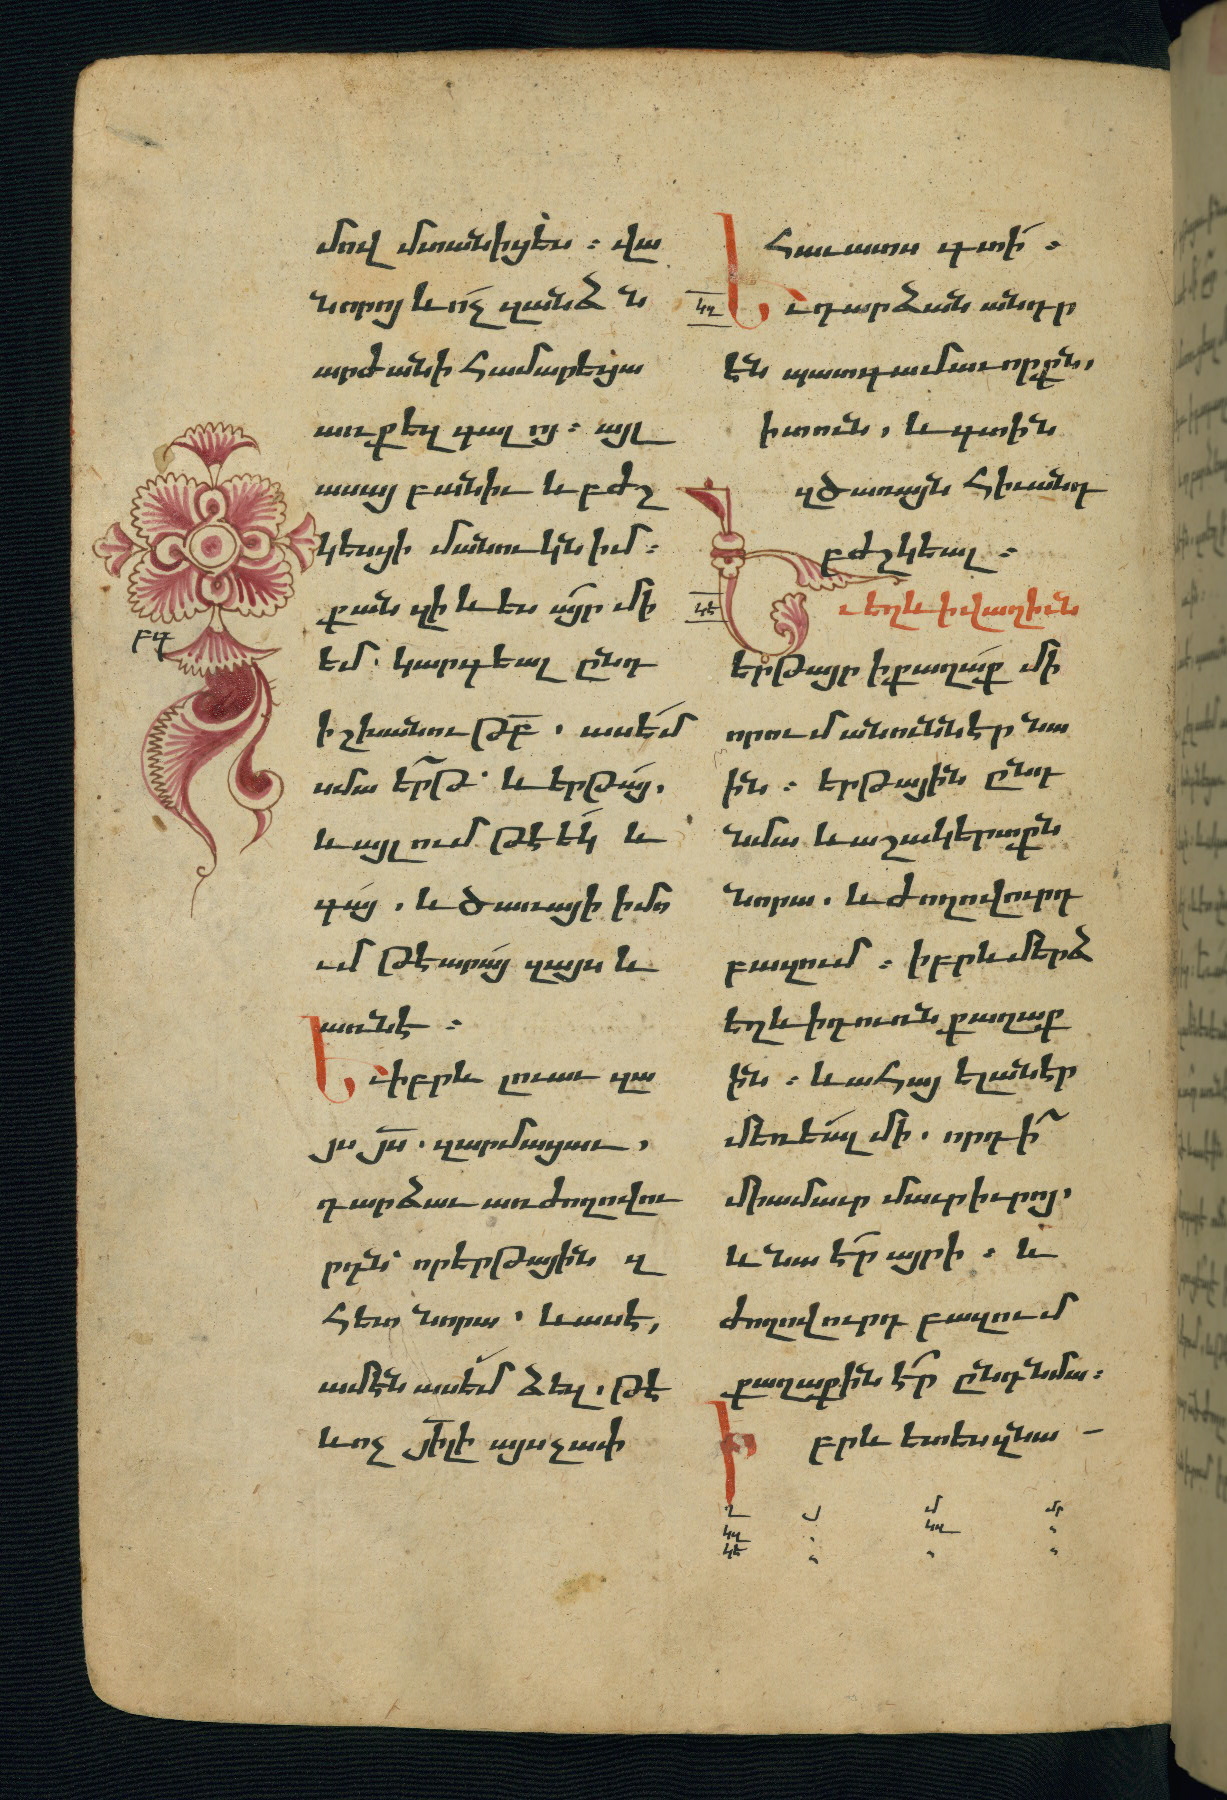 մով մտանիցես : վա
նորոյ և ոչ զանձն
արժանի համարեցա
առ քեզ գալ ոյ : այլ
ասայ բանիւ և բժշ
կեսցի մանուկն իմ :
քանզի և ես այր մի
եմ . կարգեալ ընդ
իշխանութբ . ասեմ
սմա երթ՝ և երթայ .
և այլում թէ եկ և
գայ . և ծառայի իմո
ւմ թէ արայ զայս և
առնէ :
Եւ իբրև լուաւ զա
յս յս . զարմացաւ ,
դարձաւ առ ժողովու
րդն՝ որ երթային զ
հետ նորա . և ասէ ,
ամէն ասեմ ձեզ . թէ
և ոչ յիլի այսչափ
հաւատս գտի :
կդ
Եւ դարձան անդր
էն պատգամաւորքն ,
ի տուն , և գտին
զծառայն հիւանդ
բժշկեալ :
կե
Եւ եղև ի վաղիւն
երթայր ի քաղաք մի
որում անունն էր նա
ին : երթային ընդ
նմա և աշակերտքն
նորա . և ժողովուրդ
բազում : իբրև մերձ
եղև ի դուռն քաղաք
ին : և ահայ ելանէր
մեռեալ մի . որդի
միամաւր մաւր իւրոյ ,
և նա էր այրի : և
ժողովուրդ բազում
քաղաքին էր ընդ նմա :
Իբրև ետես զնա